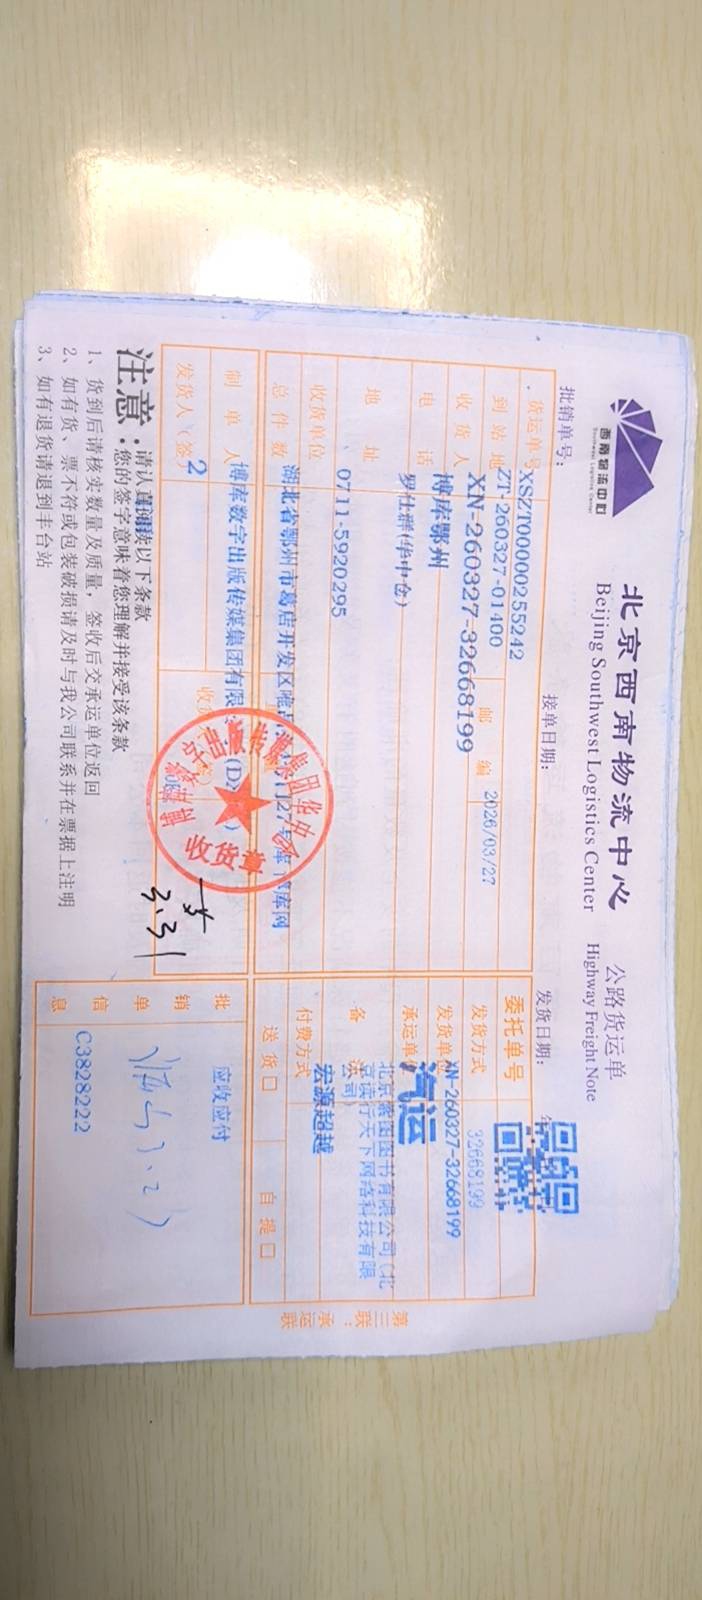 西南物流中心
Southwest Logistics Center
北京西南物流中心
Beijing Southwest Logistics Center
公路货运单
Highway Freight Note
批销单号：
接单日期：
发货日期：
XSZT00000255242
货运单号
ZT-260327-01400
邮编
2026/03/27
到站地
XN-260327-32668199
收货人
博库鄂州
电话
罗仕群(华中仓)
地址
0711-5920295
收货单位
湖北省鄂州市葛店开发区唯品
库网
总件数
博库数字出版传媒集团有限
制单人
2
发货人(签)
收货章
3.31
委托单号
32668199
发货方式
XN-260327-32668199
发货单位
汽运
承运单
北京紫图图书有限公司(北
京读行天下网络科技有限
公司)
备注
宏源超越
付费方式
送货□
自提□
应收应付
批销单信息
C3828222
第三联：承运联
注意：
请认真阅读以下条款
您的签字意味着您理解并接受该条款
1、货到后请核实数量及质量，签收后交承运单位返回
2、如有货、票不符或包装破损请及时与我公司联系并在票据上注明
3、如有退货请退到丰台站